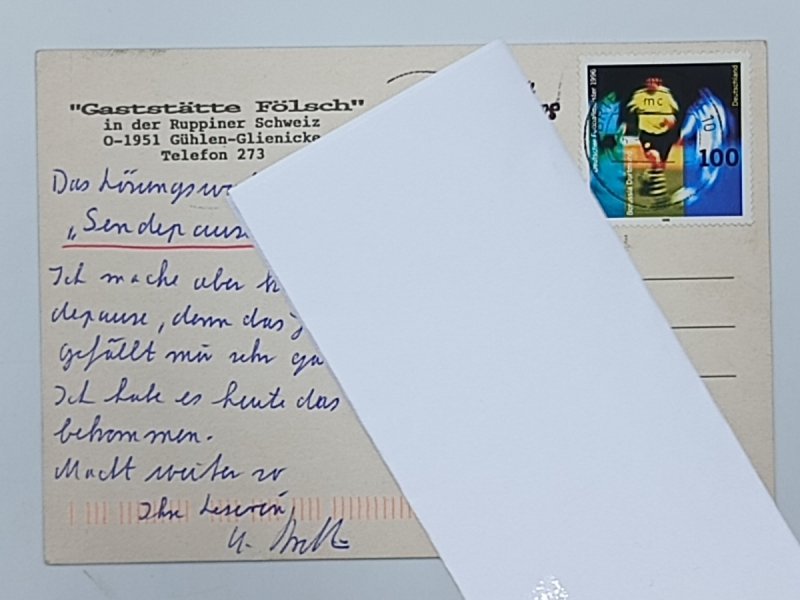 "Gaststätte Fölsch"
in der Ruppiner Schweiz
O-1951 Gühlen-Glienicke
Telefon 273
Das Lösungswo
„Sendepause
Ich mache aber k
depause, denn das
gefällt mir sehr gu
Ich habe es heute das
bekommen.
Macht weiter so
Ihre Leserin
Deutscher Fußballmeister 1996
Borussia Dortmund
Deutschland
100
mc
10